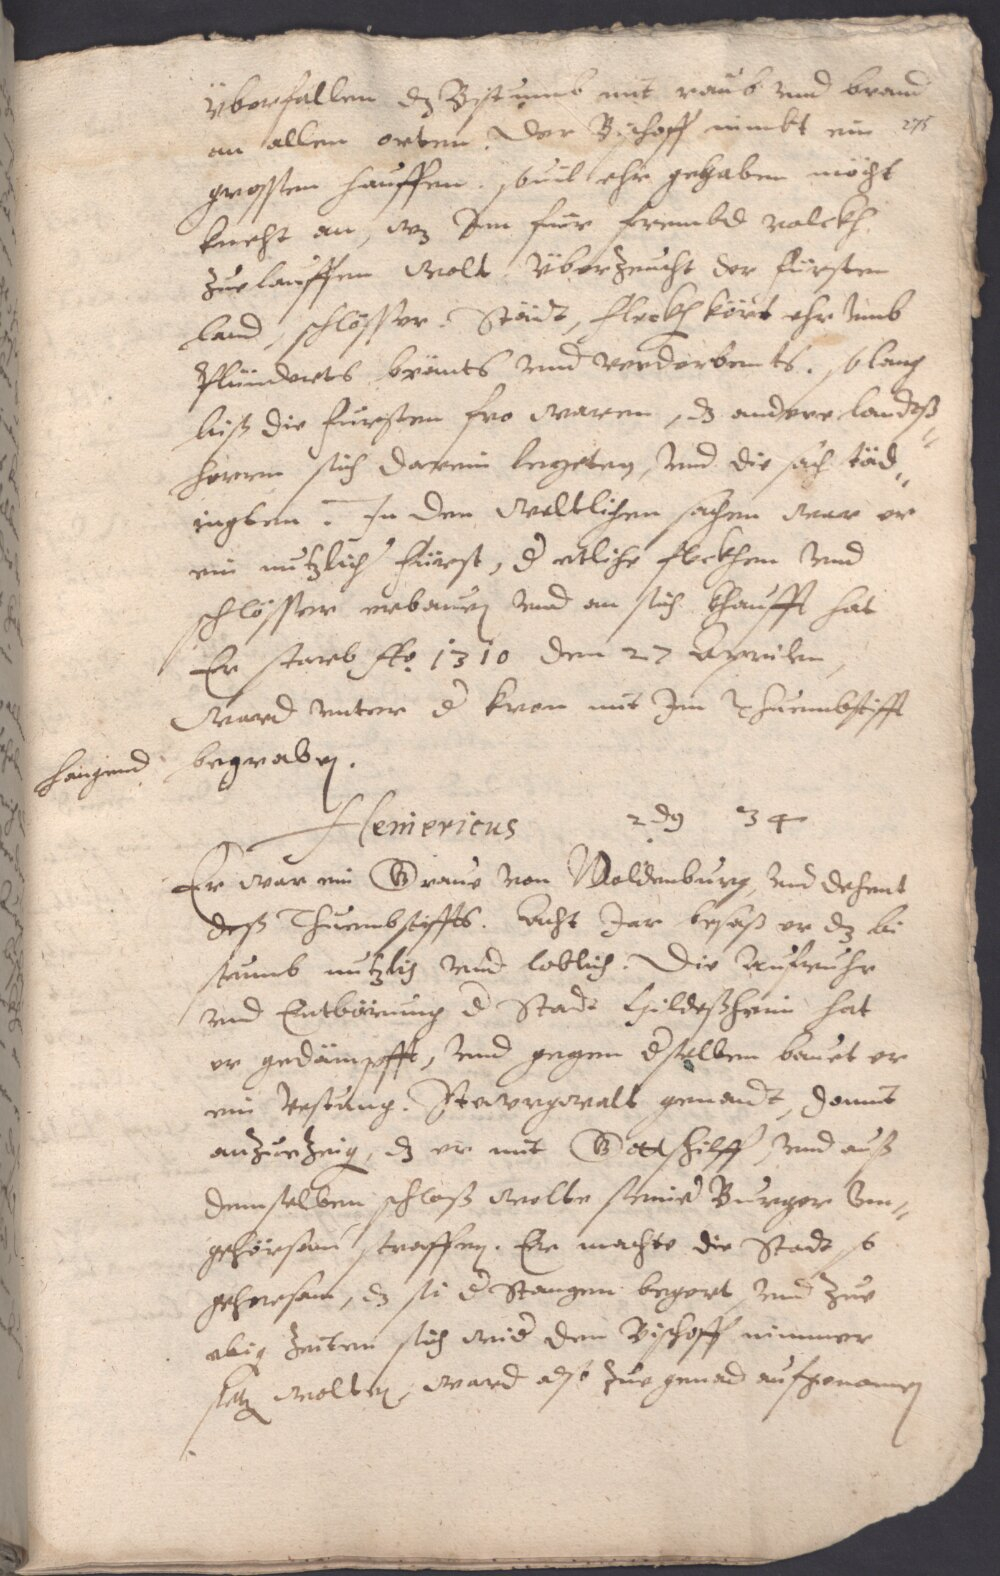 Überfallen dz Bistumb mit raub vnd brand
275
an allen orten. Der Bischoff nimbt ein
grossen hauffen. souil ehr gehaben möcht
knecht an, wz Im für frembd volckh
zuelauffen wolt. Überzeucht der fürsten
land, schlösser. Städt, fleckh kört ehr vmb
Plünderts bränts vnd verderbents. so lang
biß die fürsten fro waren, dz andere landeß
herren sich darein legeten, vnd die sach täd„
ingten. In den weltlichen sachen war er
ein nutzlich fürst, d etliche fleckhen vnd
schlösser erbauen vnd an sich khaufft hat
Er starb Ao 1310 den 27 Aprilen,
ward vnter d kron mit Im Thuembstifft
hangend begraben.
Heniericus 2dg 34
Er war ein Graue von Woldenburg, vnd dehent
deß Thuembstiffts. Acht Jar besaß er dz bi
stumb nutzlich vnd loblich. Die Aufruhr
vnd Entbörung d Stadt Hildeßheim hat
er gedämpfft, vnd gegen dselben bauet er
ein Vestung. Steurgwalt genandt, damit
anzuezeig, dz er mit Gottshilff, vnd auß
demselben schloß wolte seine Burger Vn„
gehörsam straffen. Er machte die Stadt so
gehorsam, dz si d Stangen begert, vnd zue
ebig Zeiten sich wid den Bischoff nimmer
setz wolten, ward also zue genad aufgenomen